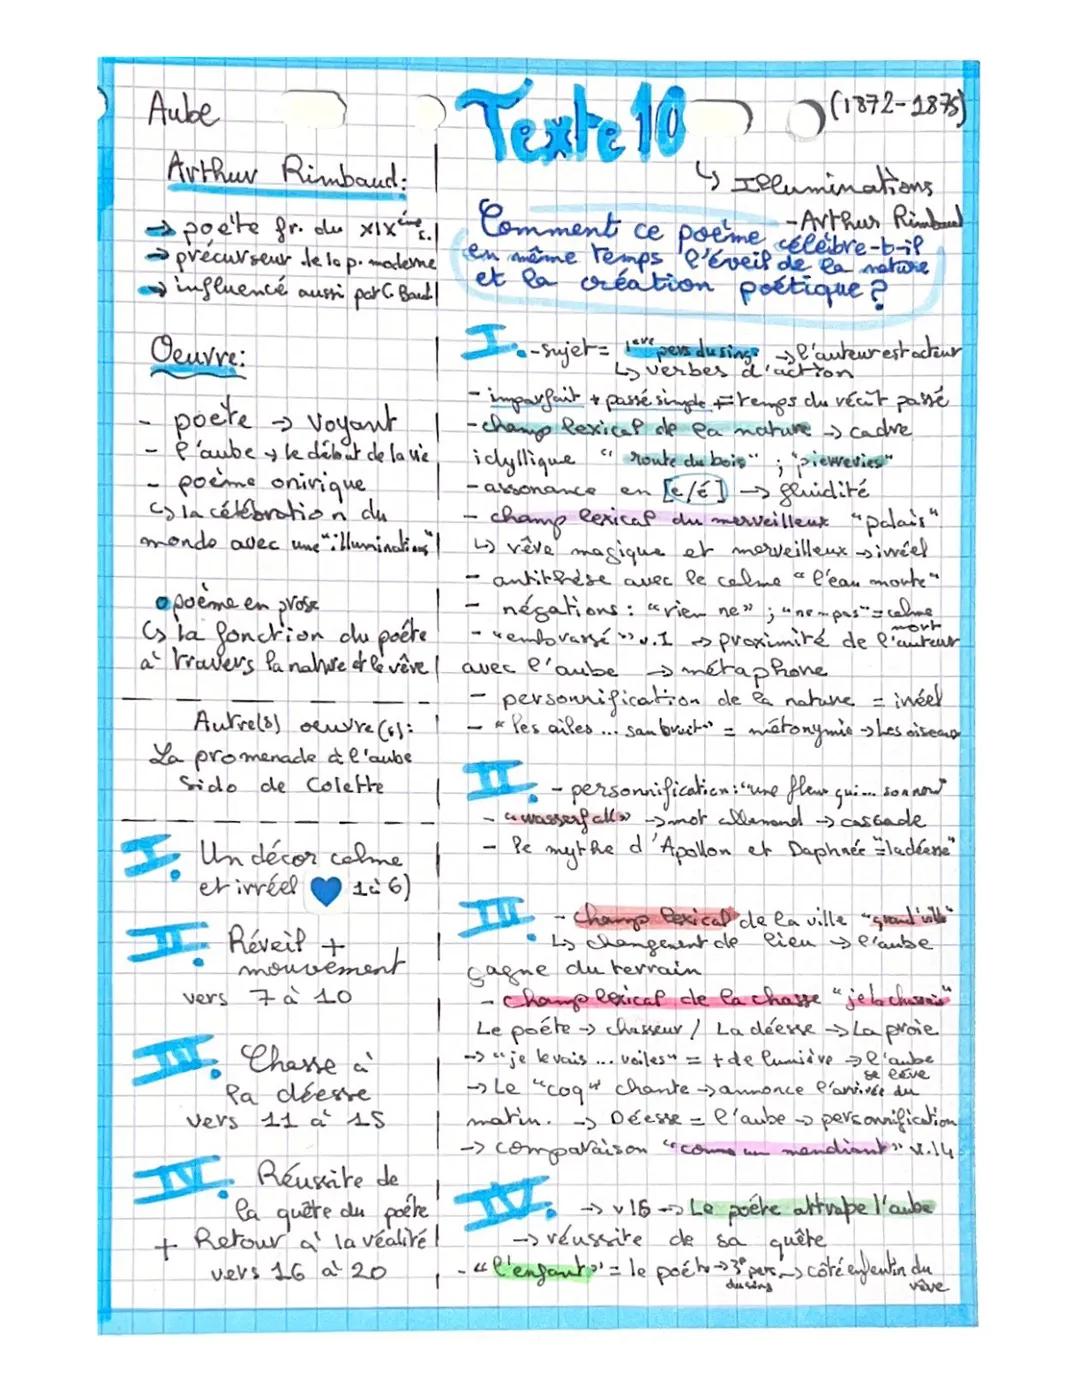 Aube
Arthur Rimbaud:
→ poète fr. du XIXème s.
→ précurseur de la p. moderne
→ influencé aussi par C. Baud.
Oeuvre:
- poète → voyant
- l'aube → le début de la vie
- poème onirique
↳ la célébration du
monde avec une "illumination"
• poème en prose
↳ la fonction du poète
à travers la nature et le rêve
Autre(s) oeuvre(s):
La promenade à l'aube
Sido de Colette
I. Un décor calme
et irréel 💙 1 à 6)
II. Réveil +
mouvement
vers 7 à 10
III. Chasse à
la déesse
vers 11 à 15
IV. Réussite de
la quête du poète
+ Retour à la réalité
vers 16 à 20
Texte 10
(1872-1875)
↳ Illuminations
- Arthur Rimbaud
Comment ce poème célèbre-t-il
en même temps l'éveil de la nature
et la création poétique ?
I. - sujet = 1ère pers du sing → l'auteur est acteur
↳ verbes d'action
- imparfait + passé simple = temps du récit passé
- champ lexical de la nature → cadre
idyllique "route du bois" ; "pierreries"
- assonance en [e/é] → fluidité
- champ lexical du merveilleux "palais"
↳ rêve magique et merveilleux → irréel
- antithèse avec le calme "l'eau morte"
- négations : "rien ne" ; "ne - pas" = calme
mort
- "embrassé" v.1 → proximité de l'auteur
avec l'aube → métaphore
- personnification de la nature = irréel
- "les ailes ... sans bruit" = métonymie → les oiseaux
II. - personnification : "une fleur qui ... son nom"
- "wasserfall" → mot allemand → cascade
- le mythe d'Apollon et Daphnée = "la déesse"
III. - champ lexical de la ville "grand'ville"
↳ changement de lieu → l'aube
gagne du terrain
- champ lexical de la chasse "je la chassais"
Le poète → chasseur / La déesse → La proie
→ "je levais ... voiles" = + de lumière → l'aube
se lève
→ Le "coq" chante → annonce l'arrivée du
matin. → Déesse = l'aube → personnification
→ comparaison "comme un mendiant" v.14
IV. → v16 → Le poète attrape l'aube
→ réussite de sa quête
- "l'enfant" = le poète → 3e pers → côté enfantin du
du sing rêve